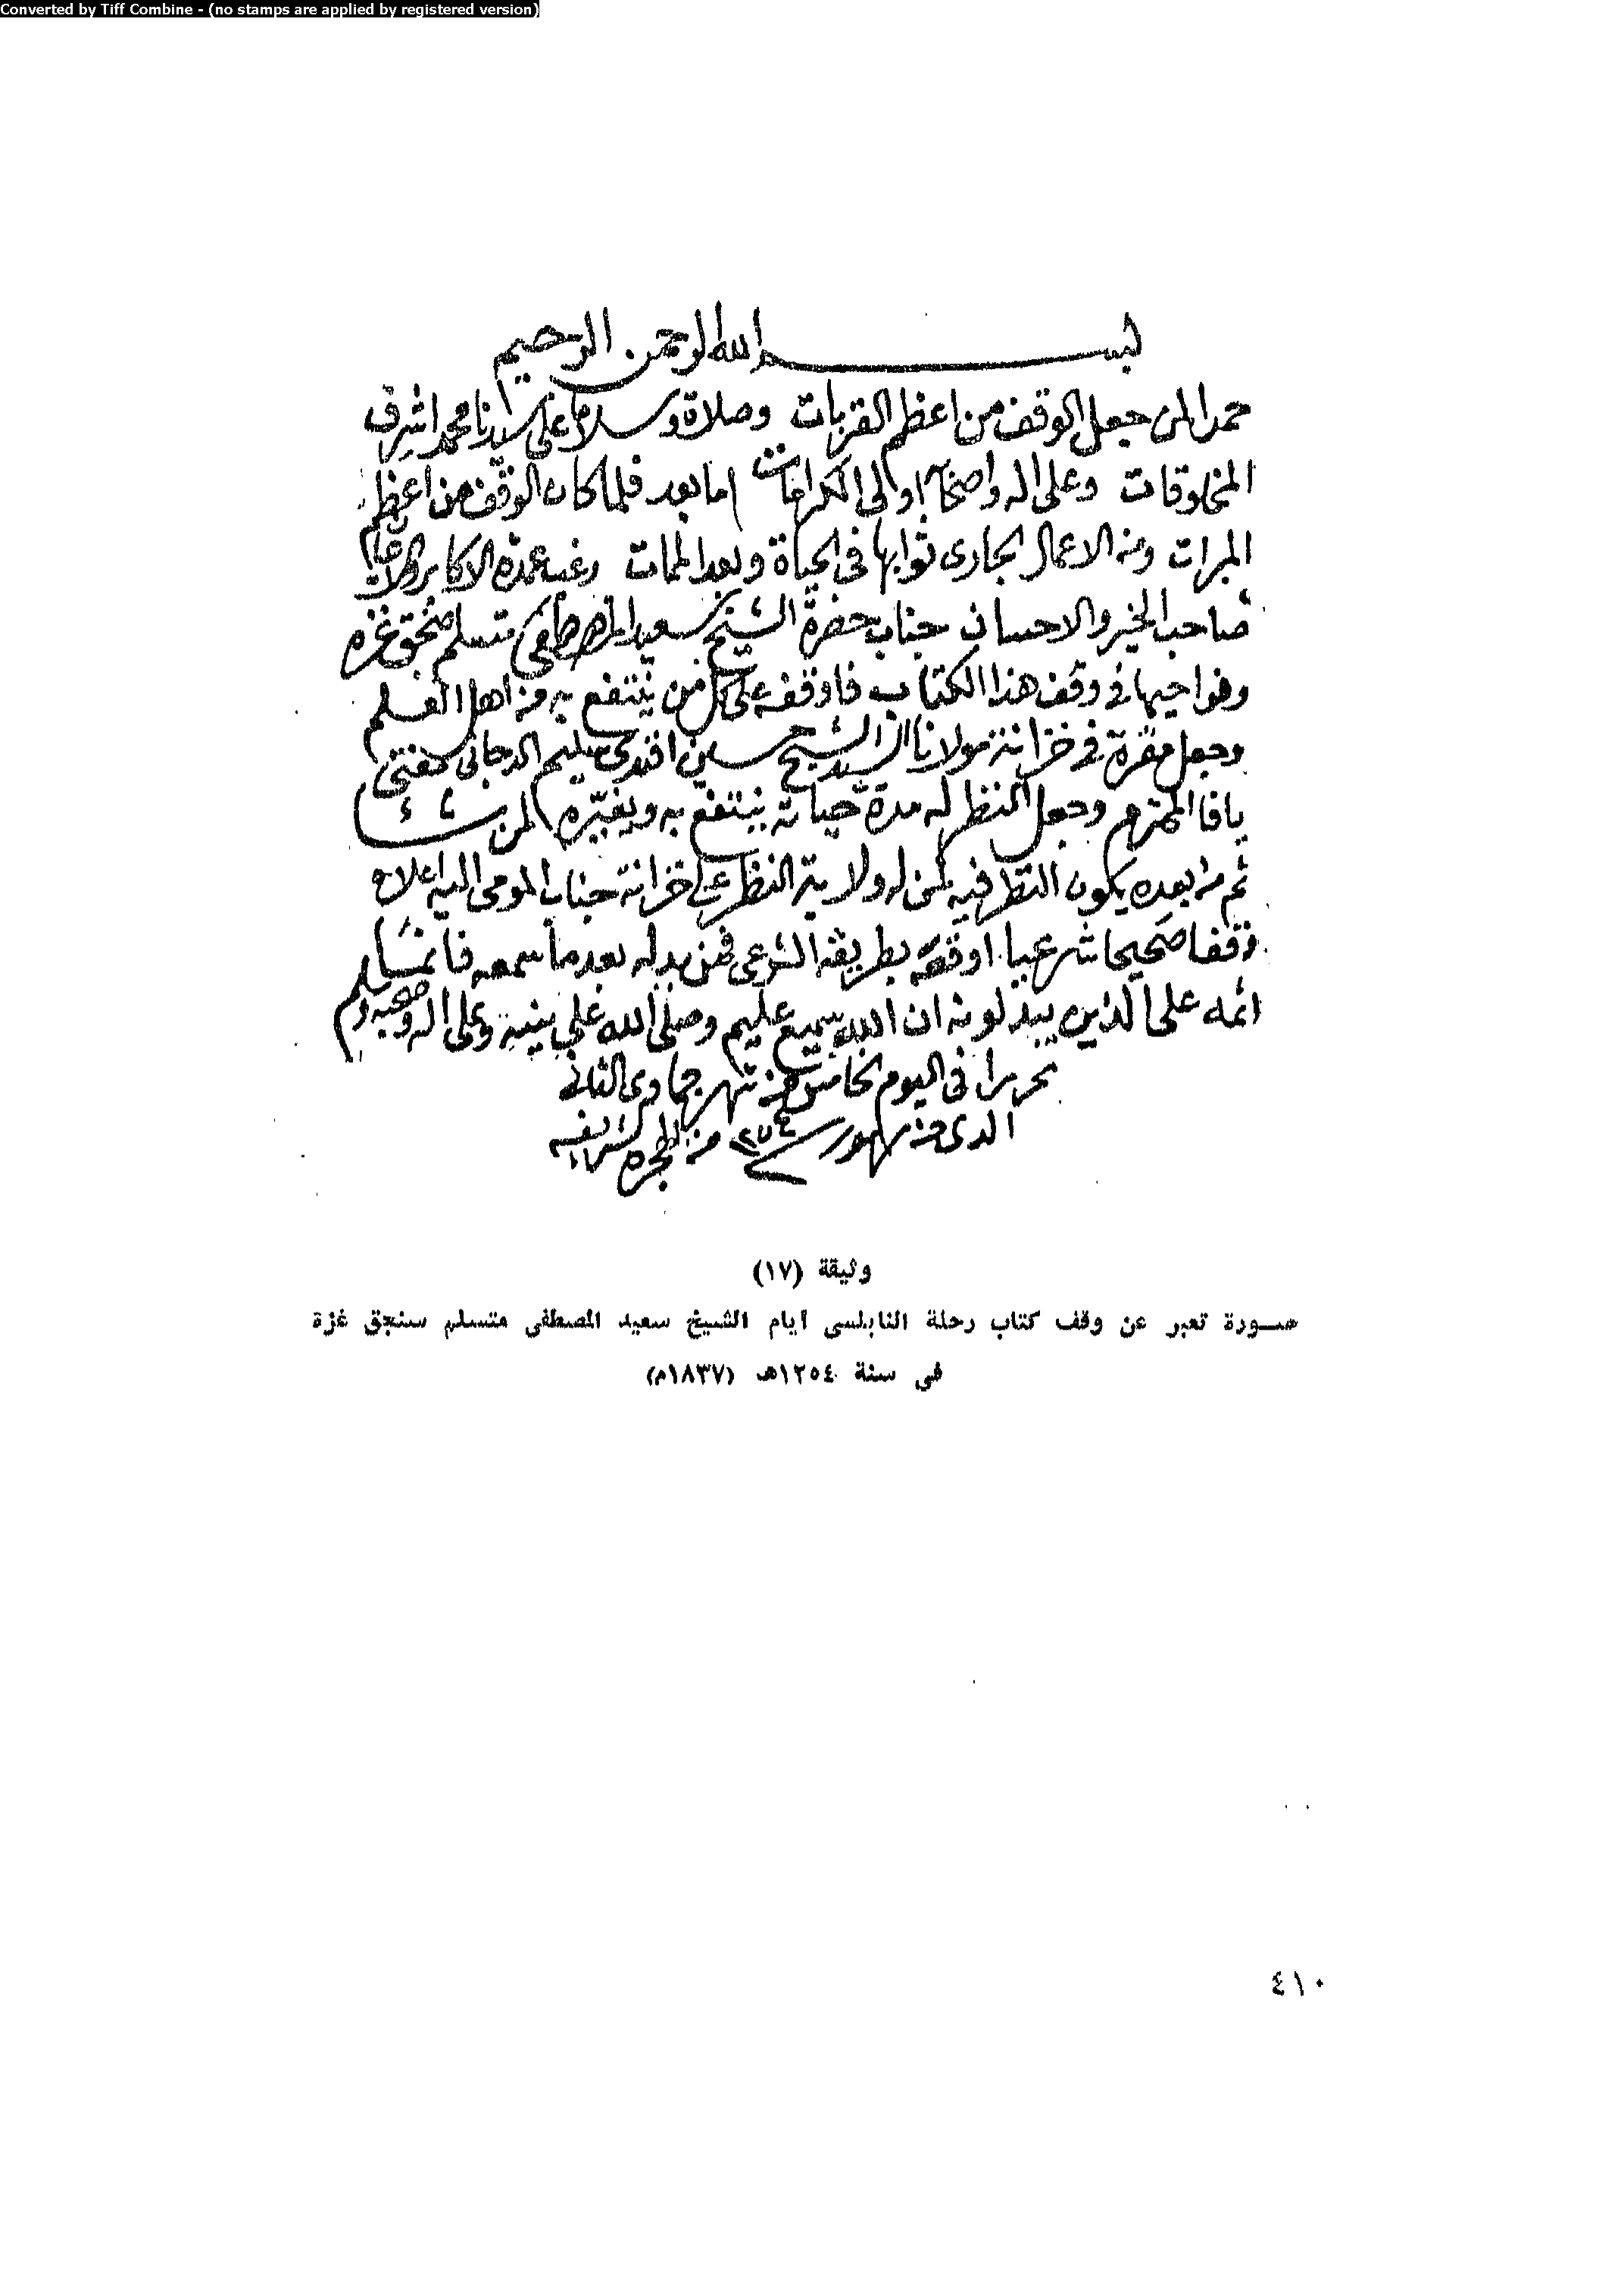 Converted by Tiff Combine - (no stamps are applied by registered version)
بسم الله الرحمن الرحيم
حمدا لمن جعل الوقف من اعظم القربات وصلاة وسلاما على سيدنا محمد اشرف
المخلوقات وعلى اله واصحابه اولى الكرامات اما بعد فلما كان الوقف من اعظم
المبرات ومن الاعمال الجارى ثوابها فى الحياة وبعد الممات رغب عمدة الاكابر
صاحب الخير والاحسان جناب حضرة الشيخ سعيد المصطفى متسلم صنجق غزه
ونواحيها فى وقف هذا الكتاب فاوقفه على كل من ينتفع به من اهل العلم
وجعل مقره فى خزانة مولانا السيد الشيخ حسين افندى سليم الدجانى مفتى
يافا المحترم وجعل النظر له مدة حياته ينتفع به ويغيره لمن شاء
ثم من بعده يكون النظر فيه لمن له ولاية النظر على خزانة جناب المومى اليه اعلاه
وقفا صحيحا شرعيا اوقفه بطريقه الشرعى فمن بدله بعد ما سمعه فانما
اثمه على الذين يبدلونه ان الله سميع عليم وصلى الله على نبيه وعلى اله وصحبه وسلم
تحريرا فى اليوم الخامس من شهر جمادى الثانى
الذى من شهور سنة ١٢٥٤ من الهجره الشريفه
وثيقة (١٧)
صورة تعبر عن وقف كتاب رحلة النابلسى أيام الشيخ سعيد المصطفى متسلم سنجق غزة
فى سنة ١٢٥٤هـ (١٨٣٧م)
٤١٠